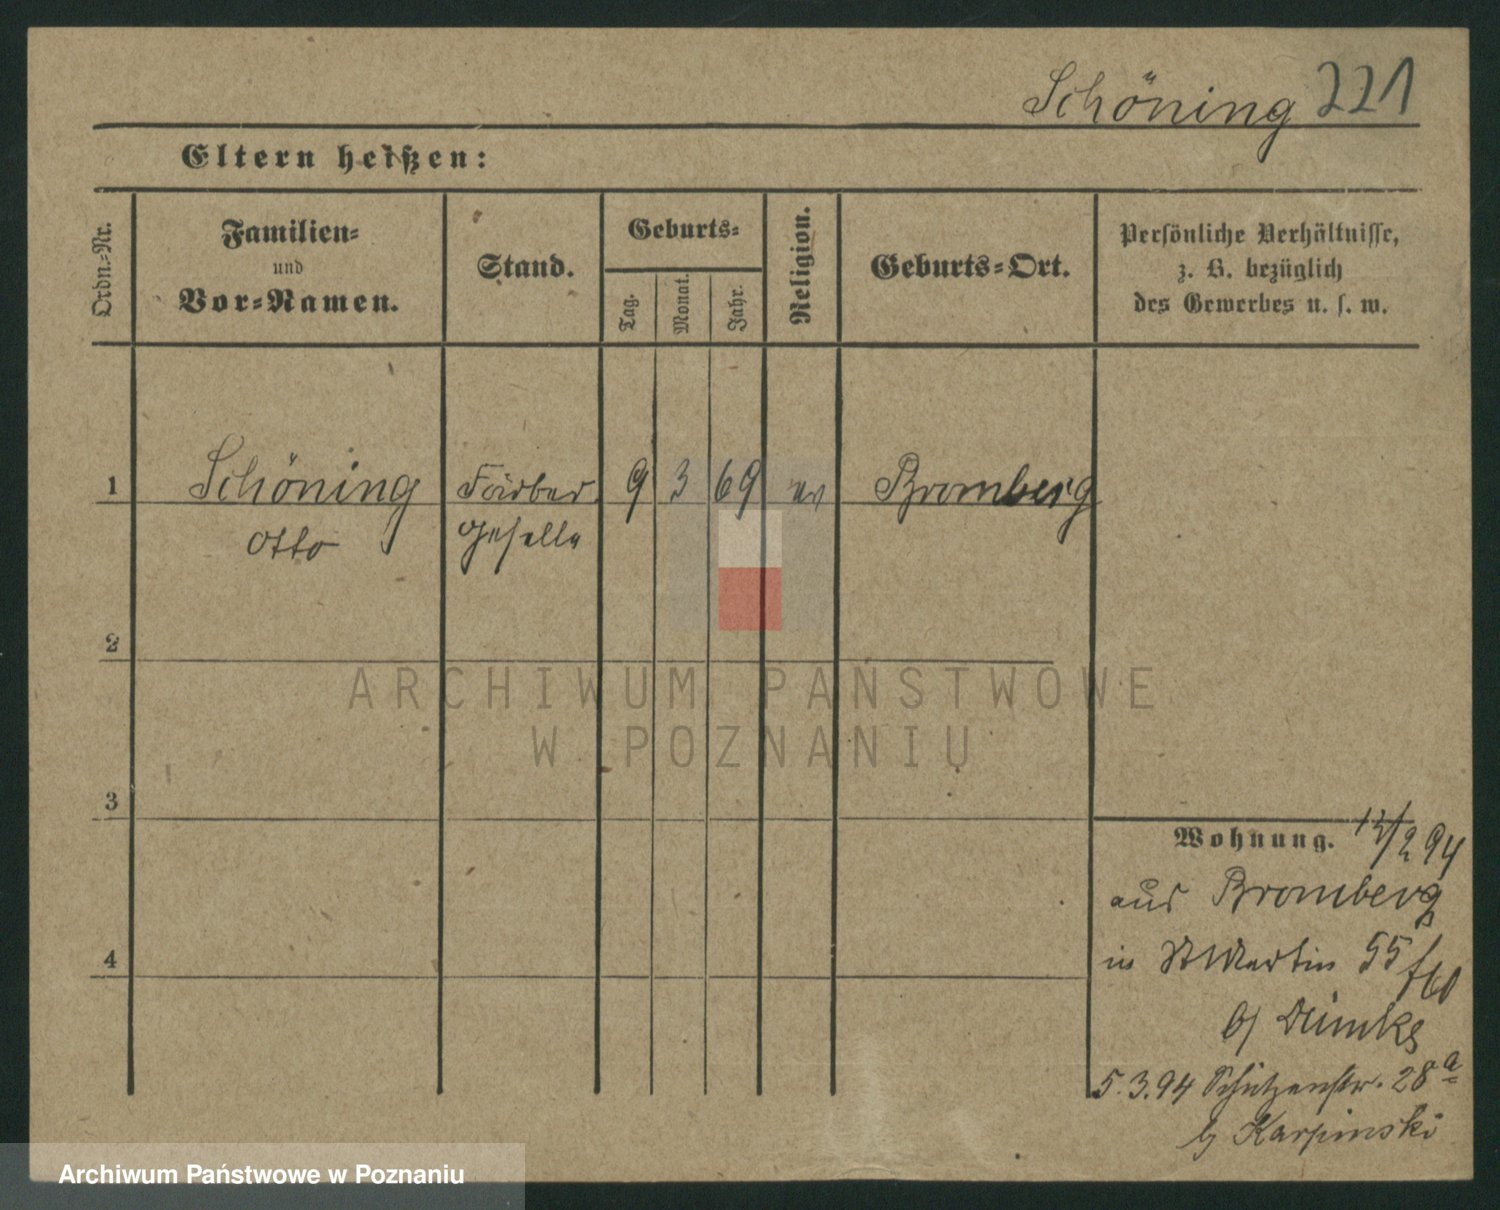 Schöning 221
Eltern heißen:
Ordn.-Nr.
Familien-
und
Vor-Namen.
Stand.
Geburts-
Tag.
Monat.
Jahr.
Religion.
Geburts-Ort.
Persönliche Verhältnisse,
z. B. bezüglich
des Gewerbes u. s. w.
1 Schöning Färber 9 3 69 ev Bromberg
Otto geselle
2
ARCHIWUM PAŃSTWOWE
W POZNANIU
3
Wohnung. 12/2 94
aus Bromberg
in St Martin 55
b/
4
5.3.94 Schützenstr. 28a
b/ Karpinski
Archiwum Państwowe w Poznaniu